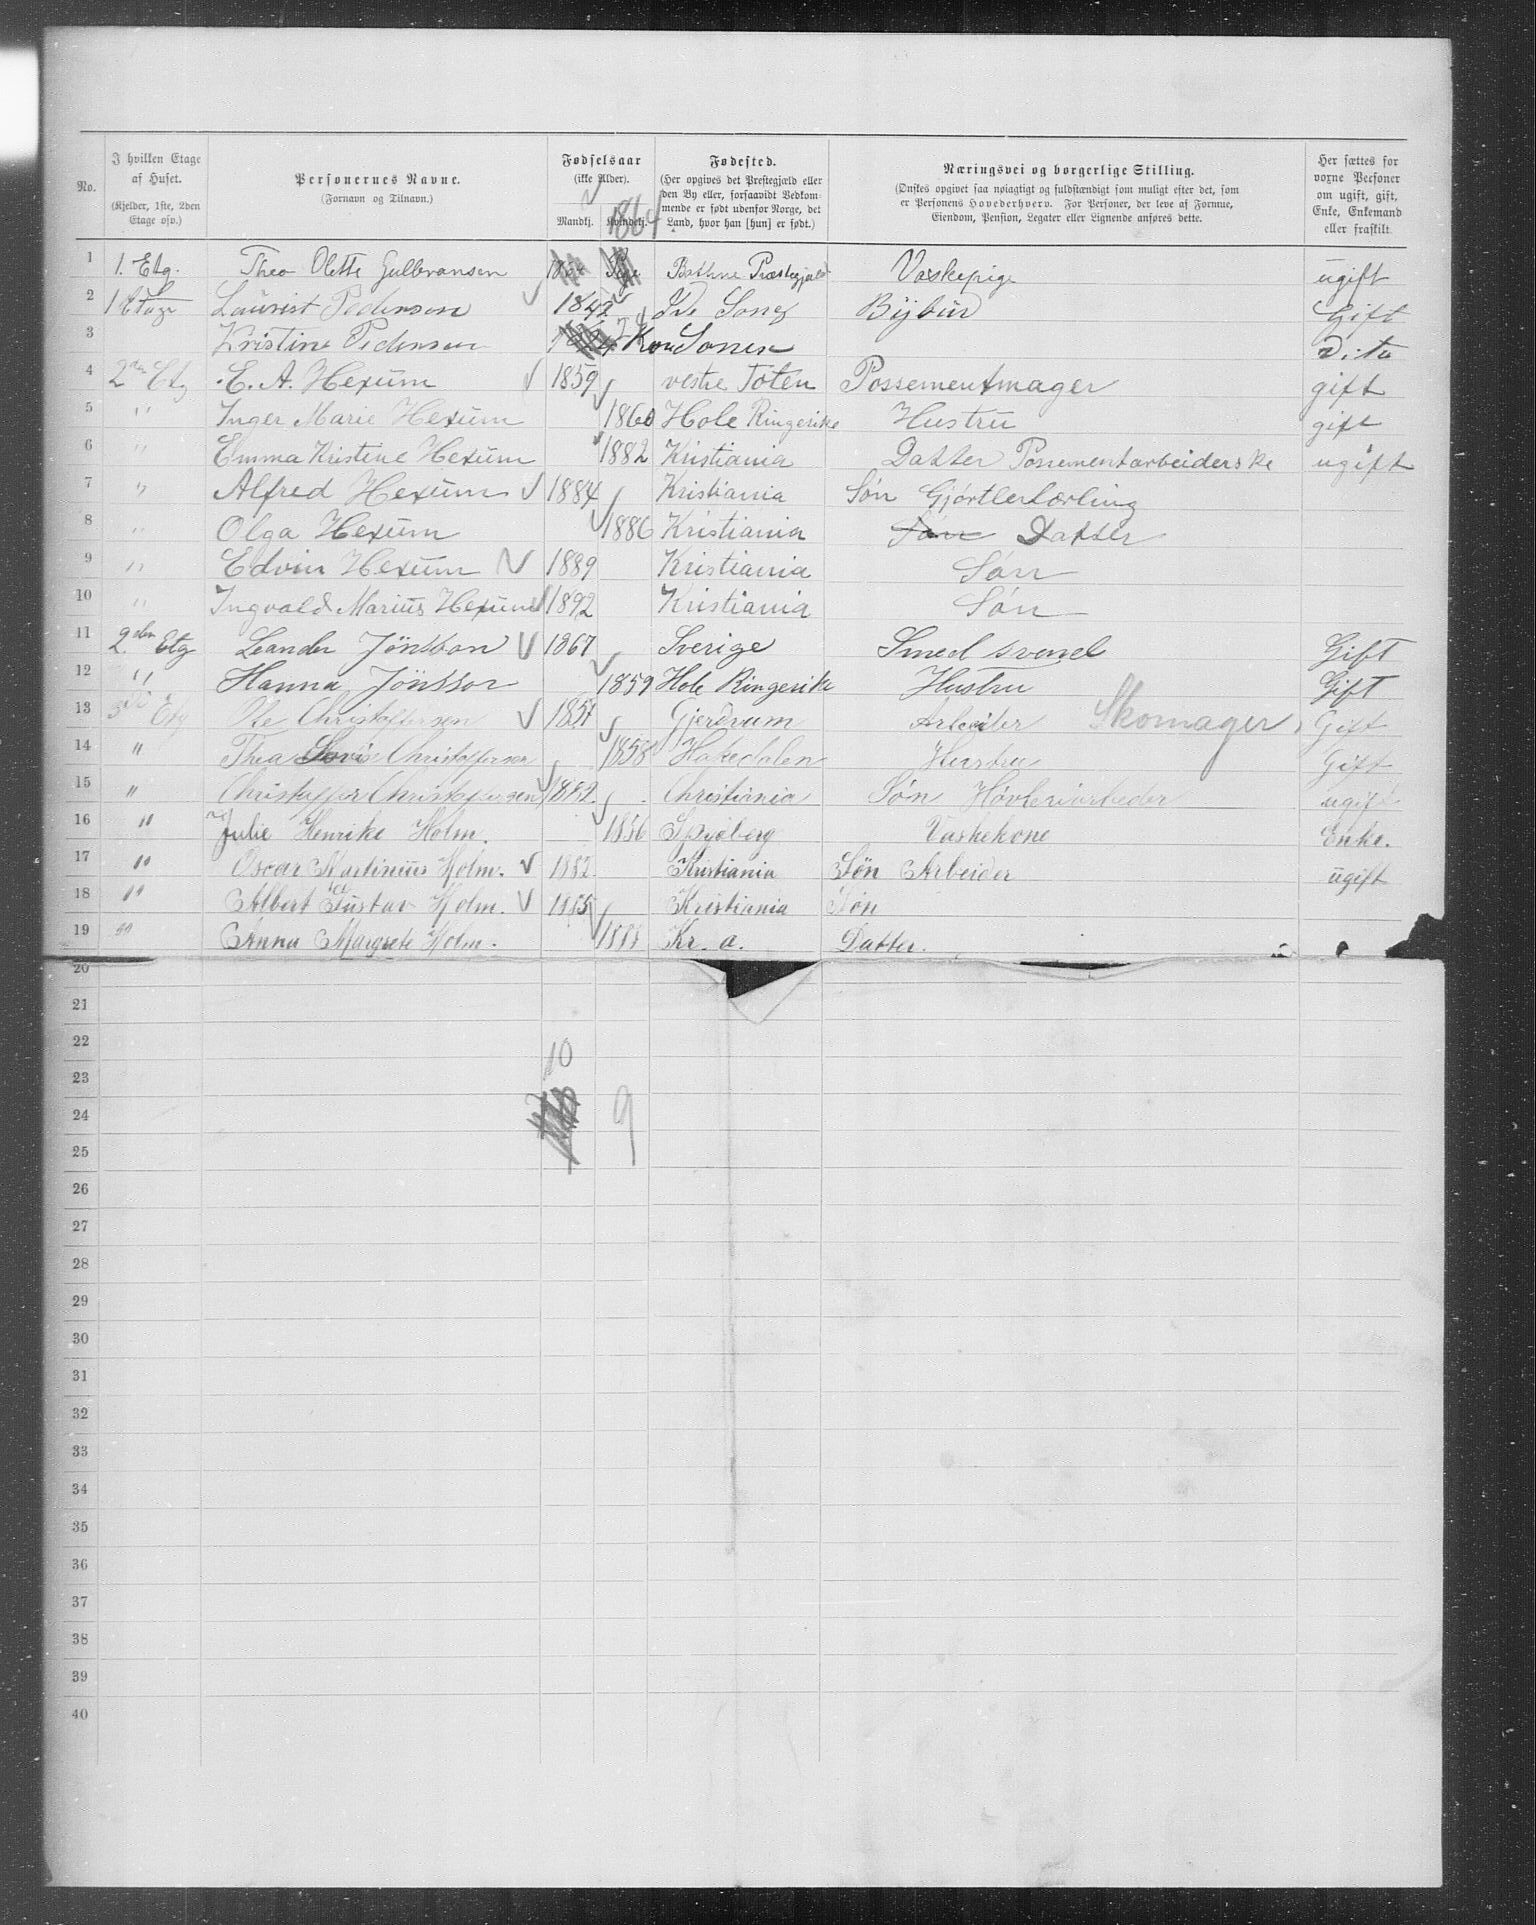 No.
I hvilken Etage af Huset.
(Kjelder, 1ste, 2den Etage osv.)
Personernes Navne.
(Fornavn og Tilnavn.)
Fødselsaar
(ikke Alder).
Mandkj. Kvindekj.
1864
Fødested.
(Her opgives det Prestegjæld eller den By eller, forsaavidt Vedkommende er født udenfor Norge, det Land, hvor han [hun] er født.)
Næringsvei og borgerlige Stilling.
(Ønskes opgivet saa nøiagtigt og fuldstændigt som muligt efter det, som er Personens Hovederhverv. For Personer, der leve af Formue, Eiendom, Pension, Legater eller Lignende anføres dette.
Her sættes for voxne Personer om ugift, gift, Enke, Enkemand eller fraskilt.
1 1. Etg. Thea Olette Gulbransen Pige Præstegjæld Vaskepige ugift
2 1 Etage Laurest Pedersen 1842 Bybud Gift
3 Kristine Pedersen Dito
4 2den Etg E. A. Hexum 1859 vestre Toten Possementmager gift
5 " Inger Marie Hexum 1860 Hole Ringerike Hustru gift
6 " Emma Kristine Hexum 1882 Kristiania Datter Possementarbeiderske ugift
7 " Alfred Hexum 1884 Kristiania Søn Gjørtlerlærling
8 " Olga Hexum 1886 Kristiania Søn Datter
9 " Edvin Hexum 1889 Kristiania Søn
10 " Ingvald Marius Hexum 1892 Kristiania Søn
11 2den Etg Leander Jönsson 1867 Sverige Smedsvend Gift
12 " Hanna Jönsson 1859 Hole Ringerike Hustru Gift
13 3die Etg Ole Christoffersen 1857 Gjerdrum Arbeider Skomager Gift
14 " Thea Lovise Christoffersen 1858 Hakedalen Hustru Gift
15 " Christoffer Christoffersen 1882 Christiania Søn Høvleriarbeder ugift
16 " Julie Henrike Holm. 1856 Spydberg Vaskekone Enke.
17 " Oscar Martinius Holm. 1882 Kristiania Søn Arbeider ugift
18 " Albert Gustav Holm. 1885 Kristiania Søn
19 " Anna Margrete Holm. Kr. a. Datter.
20
21
22 10
23
24 9
25
26
27
28
29
30
31
32
33
34
35
36
37
38
39
40